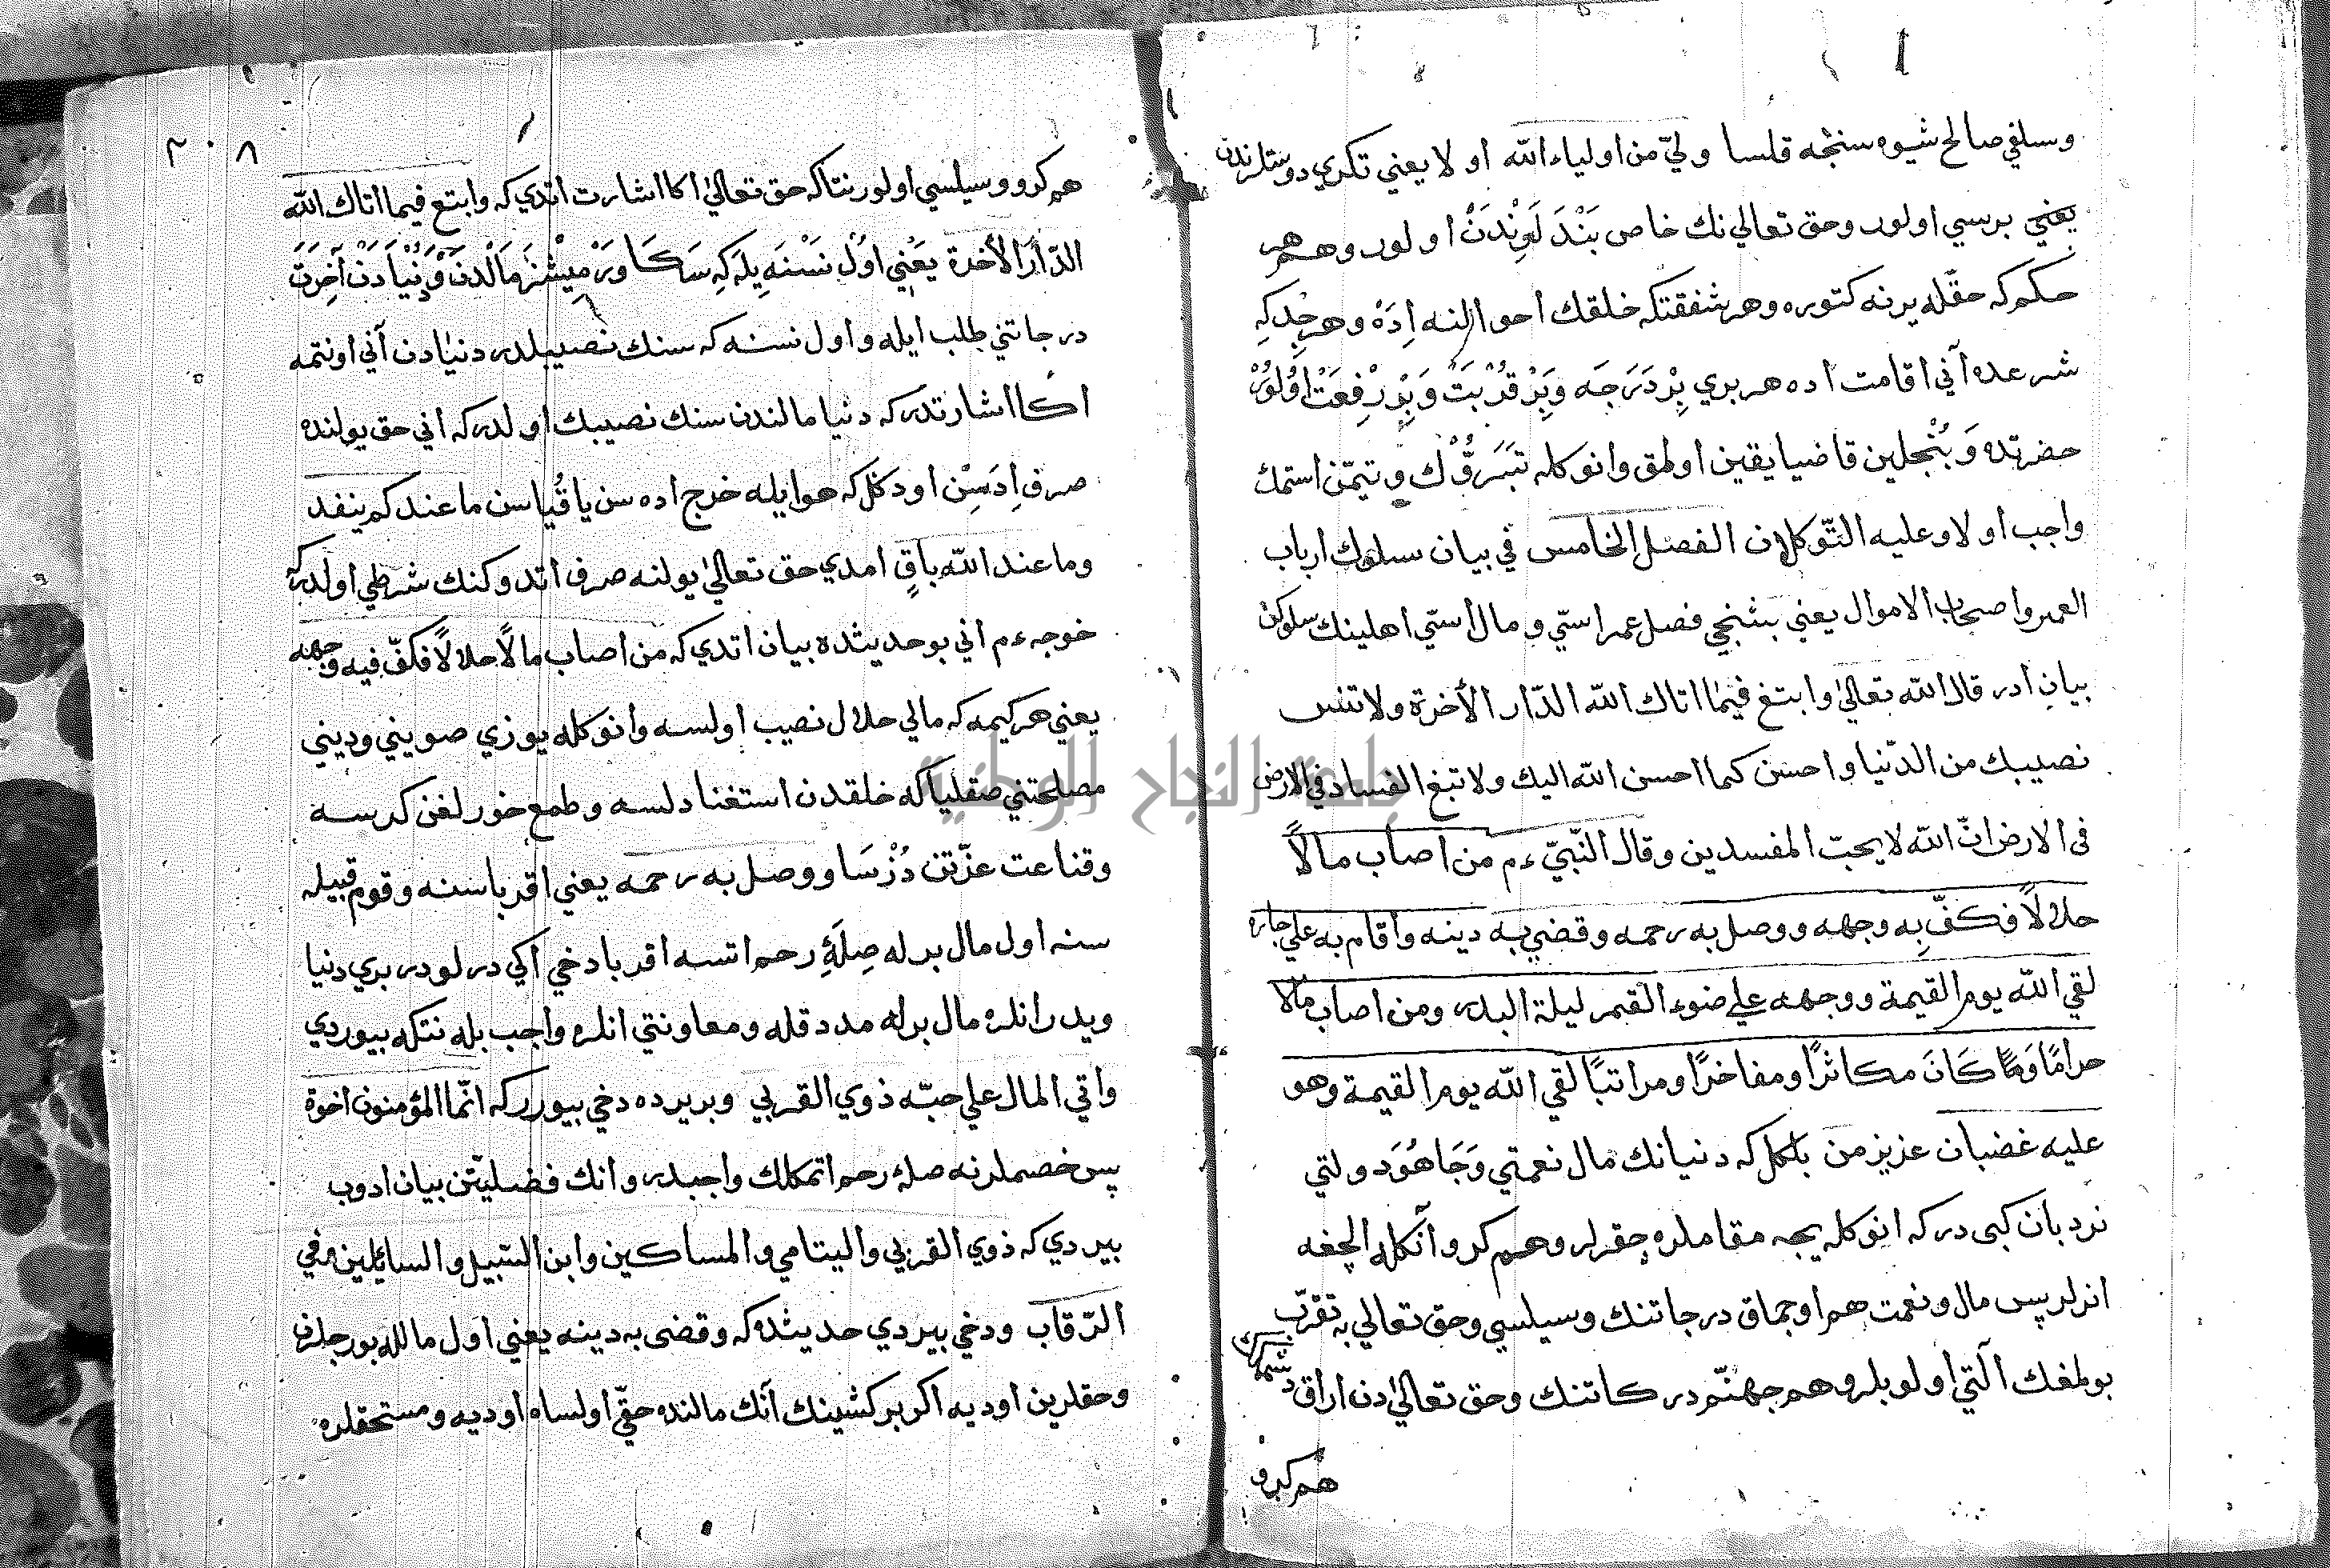 وسلفي صالح شيوه سنجه قلسا ولي من اولياء الله اولا يعني تكري دوستلرندن
يعني برسي اولور وحق تعالي نك خاص بَنْدَ لَرِنْدَنْ اولور وهم هر
حكم كه حقله يرنه كتوره وهر شفقتكه خلقك احوالنه اِدَهْ وهر جِدْكِه
شرعده آني اقامت اده هر بري بِرْ دَرَجَه وَبِرْ قُرْبَتْ وَبِرْ رِفْعَتْ اُولُورْ
حضرتده وَبُنْجلين قاضيا يقين اولمق وانوكله تَبَرُّوك وتيمّن استمك
واجب اولا وعليه التّوكلان الفصل الخامس في بيان سلوك ارباب
العمر واصحاب الاموال يعني بشنجي فصل عمر استي ومال استي اهلينك سلوكن
بيان ادر قال الله تعالىٰ وابتغ فيما اتاك الله الدّار الأخرة ولا تنس
نصيبك من الدّنيا واحسن كما احسن الله اليك ولا تبغ الفساد في الارض
في الارض انّ الله لا يحبّ المفسدين وقال النّبيّ ءم من اصاب مالاً
حلالاً فكفّ بِه وجهه ووصل به رحمه وقضي به دينه واقام به علي جاره
لقي الله يوم القيمة ووجهه علي ضوء القمر ليلة البدر ومن اصاب مالا
حرامًا وَكَانَ مكاثرًا ومفاخرًا ومراتبًا لقي الله يوم القيمة وهو
عليه غضبان عزيز من بلكل كه دنيانك مال نعمتي وَجَاهُ وَدولتي
نردبان كبى در كه انوكله يجه مقاملره چقرلر وهم كرو آنكله الچغه
انرلر پس مال ونعمت هم اوجماق درجاتنك وسيلسي وحق تعالي به تقرّب
بولمغك آلتي اولوبلر وهم جهنّم دركاتنك وحق تعالىٰ دن اراق دشمكلك
هم كرو
٢٠٨
هم كرو وسيلسي اولور نتاكه حق تعالىٰ اكا اشارت اتدي كه وابتغ فيما اتاك الله
الدّارَ الأخرة يَعْنِي اوُل نَسْنَه يِلَه كِه سَكَا وِرْمِيشْزْ مَالْدَنْ وَدُنْيَادَنْ آخِرَتْ
درجاتني طلب ايله واول نسنه كه سنك نصيبلدر دنيادن آني اونتمه
اكا اشارتدر كه دنيا مالندن سنك نصيبك اولدر كه اني حق يولنده
صرف اِدَسِن اودكل كه هوا يله خرج اده سن يا قُيا سن ما عندكم ينفد
وما عند الله باقٍ امدي حق تعالىٰ يولنه صرف اتدوكنك شرطي اولدركه
خوجه ءم اني بو حديثده بيان اتدي كه من اصاب مالاً حلالاً فكفّ فيه وجهه
يعني هر كيمه كه مالي حلال نصيب اولسه وانوكله يوزي صويني وديني
مصلحتني صقليا كه خلقدن استغنا دلسه وطمع خورلغن كدرسه
وقناعت عزّتن دُزْسَا ووصل به رحمه يعني اقرباسنه وقوم قبيله
سنه اول مال برله صِلَةِ رحم اتسه اقربا دخي اكي در لودر بري دنيا
ويدر انلره مال برله مدد قله ومعاونتي انلره واجب بله نتكه بيوردي
واتي المال علي حبّه ذوي القربي وبر يرده دخي بيورر كه انّما المؤمنون اخوة
پس خصملرنه صلۀ رحم اتمكلك واجبدر وانك فضليتن بيان ادوب
بيردي كه ذوي القربي واليتامي والمساكين وابن السّبيل والسايلين وفي
الرّقاب ودخي بيردي حديثده كه وقضى به دينه يعني اول مالله بورجلرن
وحقلرين اوديه اكر بر كشينك آنك مالنده حقّي اولسا اوديه ومستحقلره